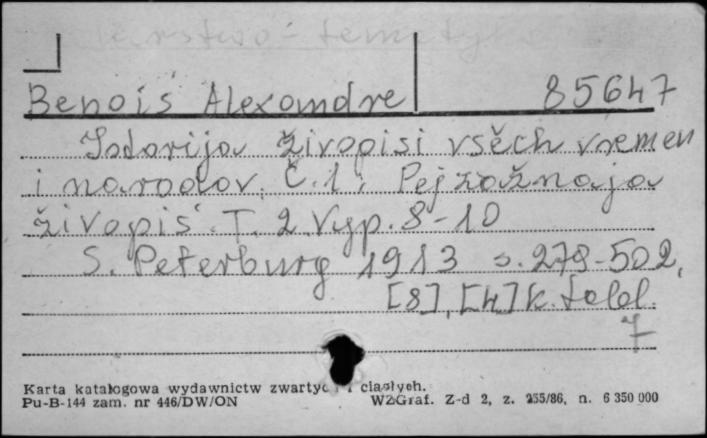 Benois Alexandre 85647
Istorija živopisi vsěch vremen
i narodov. Č.1: Pejzažnaja
živopiś. T. 2 Vyp. 8-10
S. Peterburg 1913 s. 279-502,
[8], [4] k. tabl.
7
Karta katalogowa wydawnictw zwartych i ciągłych.
Pu-B-144 zam. nr 446/DW/ON WZGraf. Z-d 2, z. 255/86, n. 6 350 000